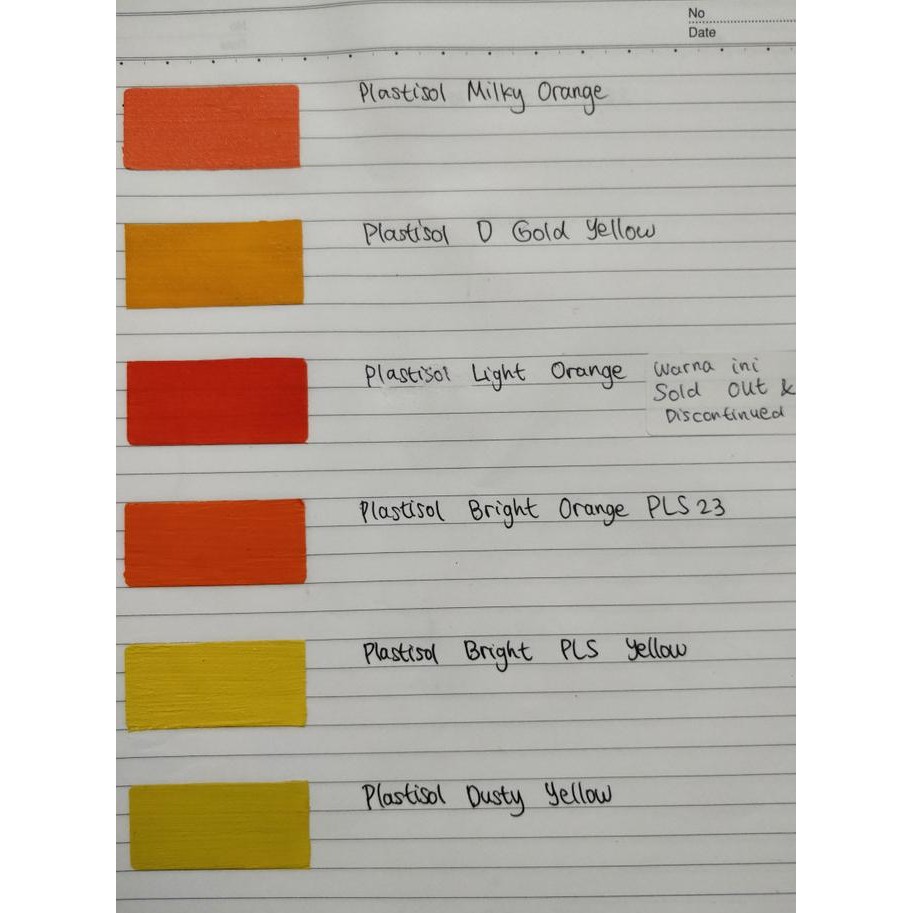 No
Date
Plastisol Milky Orange
Plastisol D Gold Yellow
Plastisol Light Orange
Warna ini
Sold Out &
Discontinued
Plastisol Bright Orange PLS 23
Plastisol Bright PLS Yellow
Plastisol Dusty Yellow